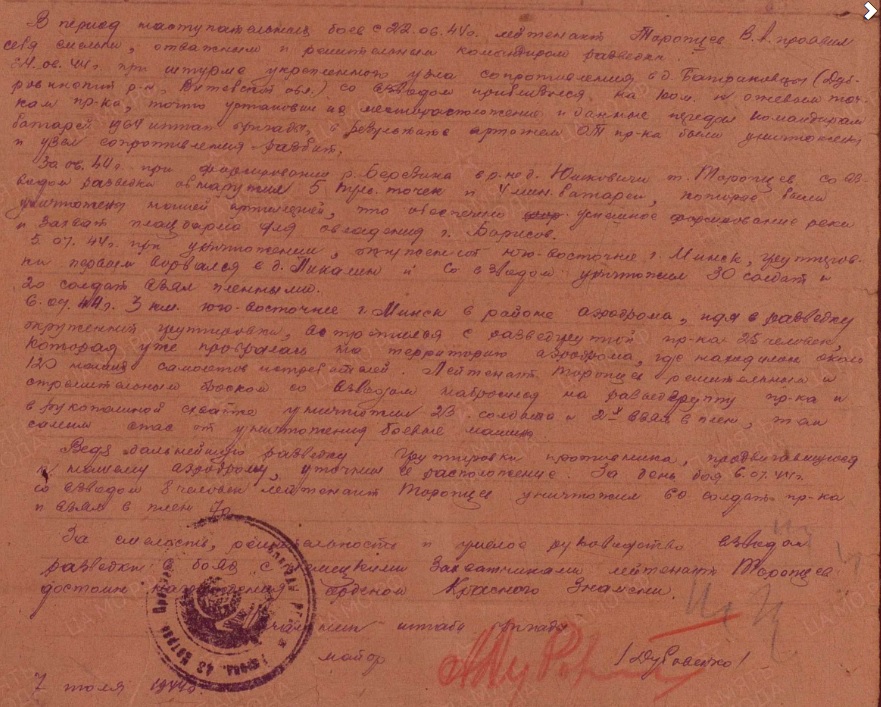 В период наступательных боев с 22.06.44г. лейтенант Торопцев В.А. проявил
себя смелым, отважным и решительным командиром разведки.
24.06.44г. при штурме укрепленного узла сопротивления в д. (Дуб-
р-н, Витебской обл.) со взводом на огневым точ-
кам пр-ка, точно установил их месторасположение и данные передал командирам
батарей 1964 иптап бригады. В результате артогнем ОТ пр-ка были уничтожены
и узел сопротивления разбит.
06.44г. при форсировании р. Березина в р-не д. л-т. Торопцев со вз-
водом разведки обнаружил 5 пул. точек и 4 мин. батареи, которые были
уничтожены нашей артиллерией, что обеспечило успешное форсирование реки
и захват плацдарма для овладения г. Борисов.
5.07.44г. при уничтожении, окружен-ой юго-восточнее г. Минск, группиров-
ки первым ворвался в д. и со взводом уничтожил 30 солдат и
20 солдат взял пленными.
6.07.44г. 3 км. юго-восточнее г. Минск в районе аэродрома, идя в разведку
окруженной группировки, встретился с разведгруппой пр-ка 25 человек,
которая уже пробралась на территорию аэродрома, где находилось около
120 наших самолетов истребителей. Лейтенант Торопцев решительным и
стремительным броском со взводом набросился на разведгруппу пр-ка и
в рукопашной схватке уничтожил 23 солдата и 2х взял в плен, тем
самым спас от уничтожения боевые машины.
Ведя дальнейшую разведку группировки противника, продвигающуюся
к нашему аэродрому, уточнил её расположение. За день боя 6.07.44г.
со взводом 8 человек лейтенант Торопцев уничтожил 60 солдат пр-ка
и взял в плен
За смелость, решительность и умелое руководство взводом
разведки в боях с немецкими захватчиками лейтенант Торопцев
достоин награждения орденом Красного Знамени.
Начальник штаба бригады
майор /Дубовенко/
7 июля 1944г.